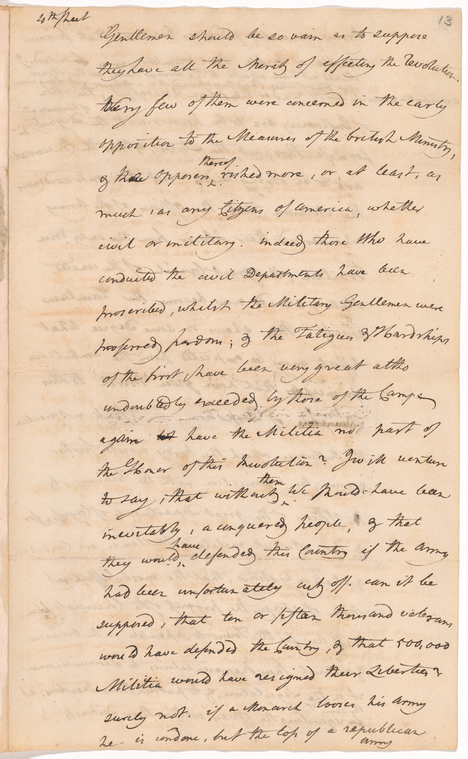 4th sheet
13
Gentlemen should be so vain as to suppose
they have all the Merit of effecting the Revolution.
Very few of them were concerned in the early
opposition to the Measures of the british Ministry,
& the Opposers thereof risked more, or at least, as
much, as any Citizens of america, whether
civil or military. indeed those Who have
conducted the civil Departments have been
proscribed, whilst the Military Gentlemen were
profferred pardon; & the Fatigues & Hardships
of the first, have been very great altho
undoubtedly exceeded by those of the Camp
again have the Militia no part of
the Honor of this Revolution? I will venture
to say, that without them We should have been
inevitably, a conquered people, & that
they would have defended this Country if the army
had been unfortunately cut off. can it be
supposed, that ten or fifteen thousand veterans
would have defended the Country, & that 500,000
Militia would have resigned their Liberties?
surely not. if a Monarch looses his army
he is undone, but the loss of a republican
army